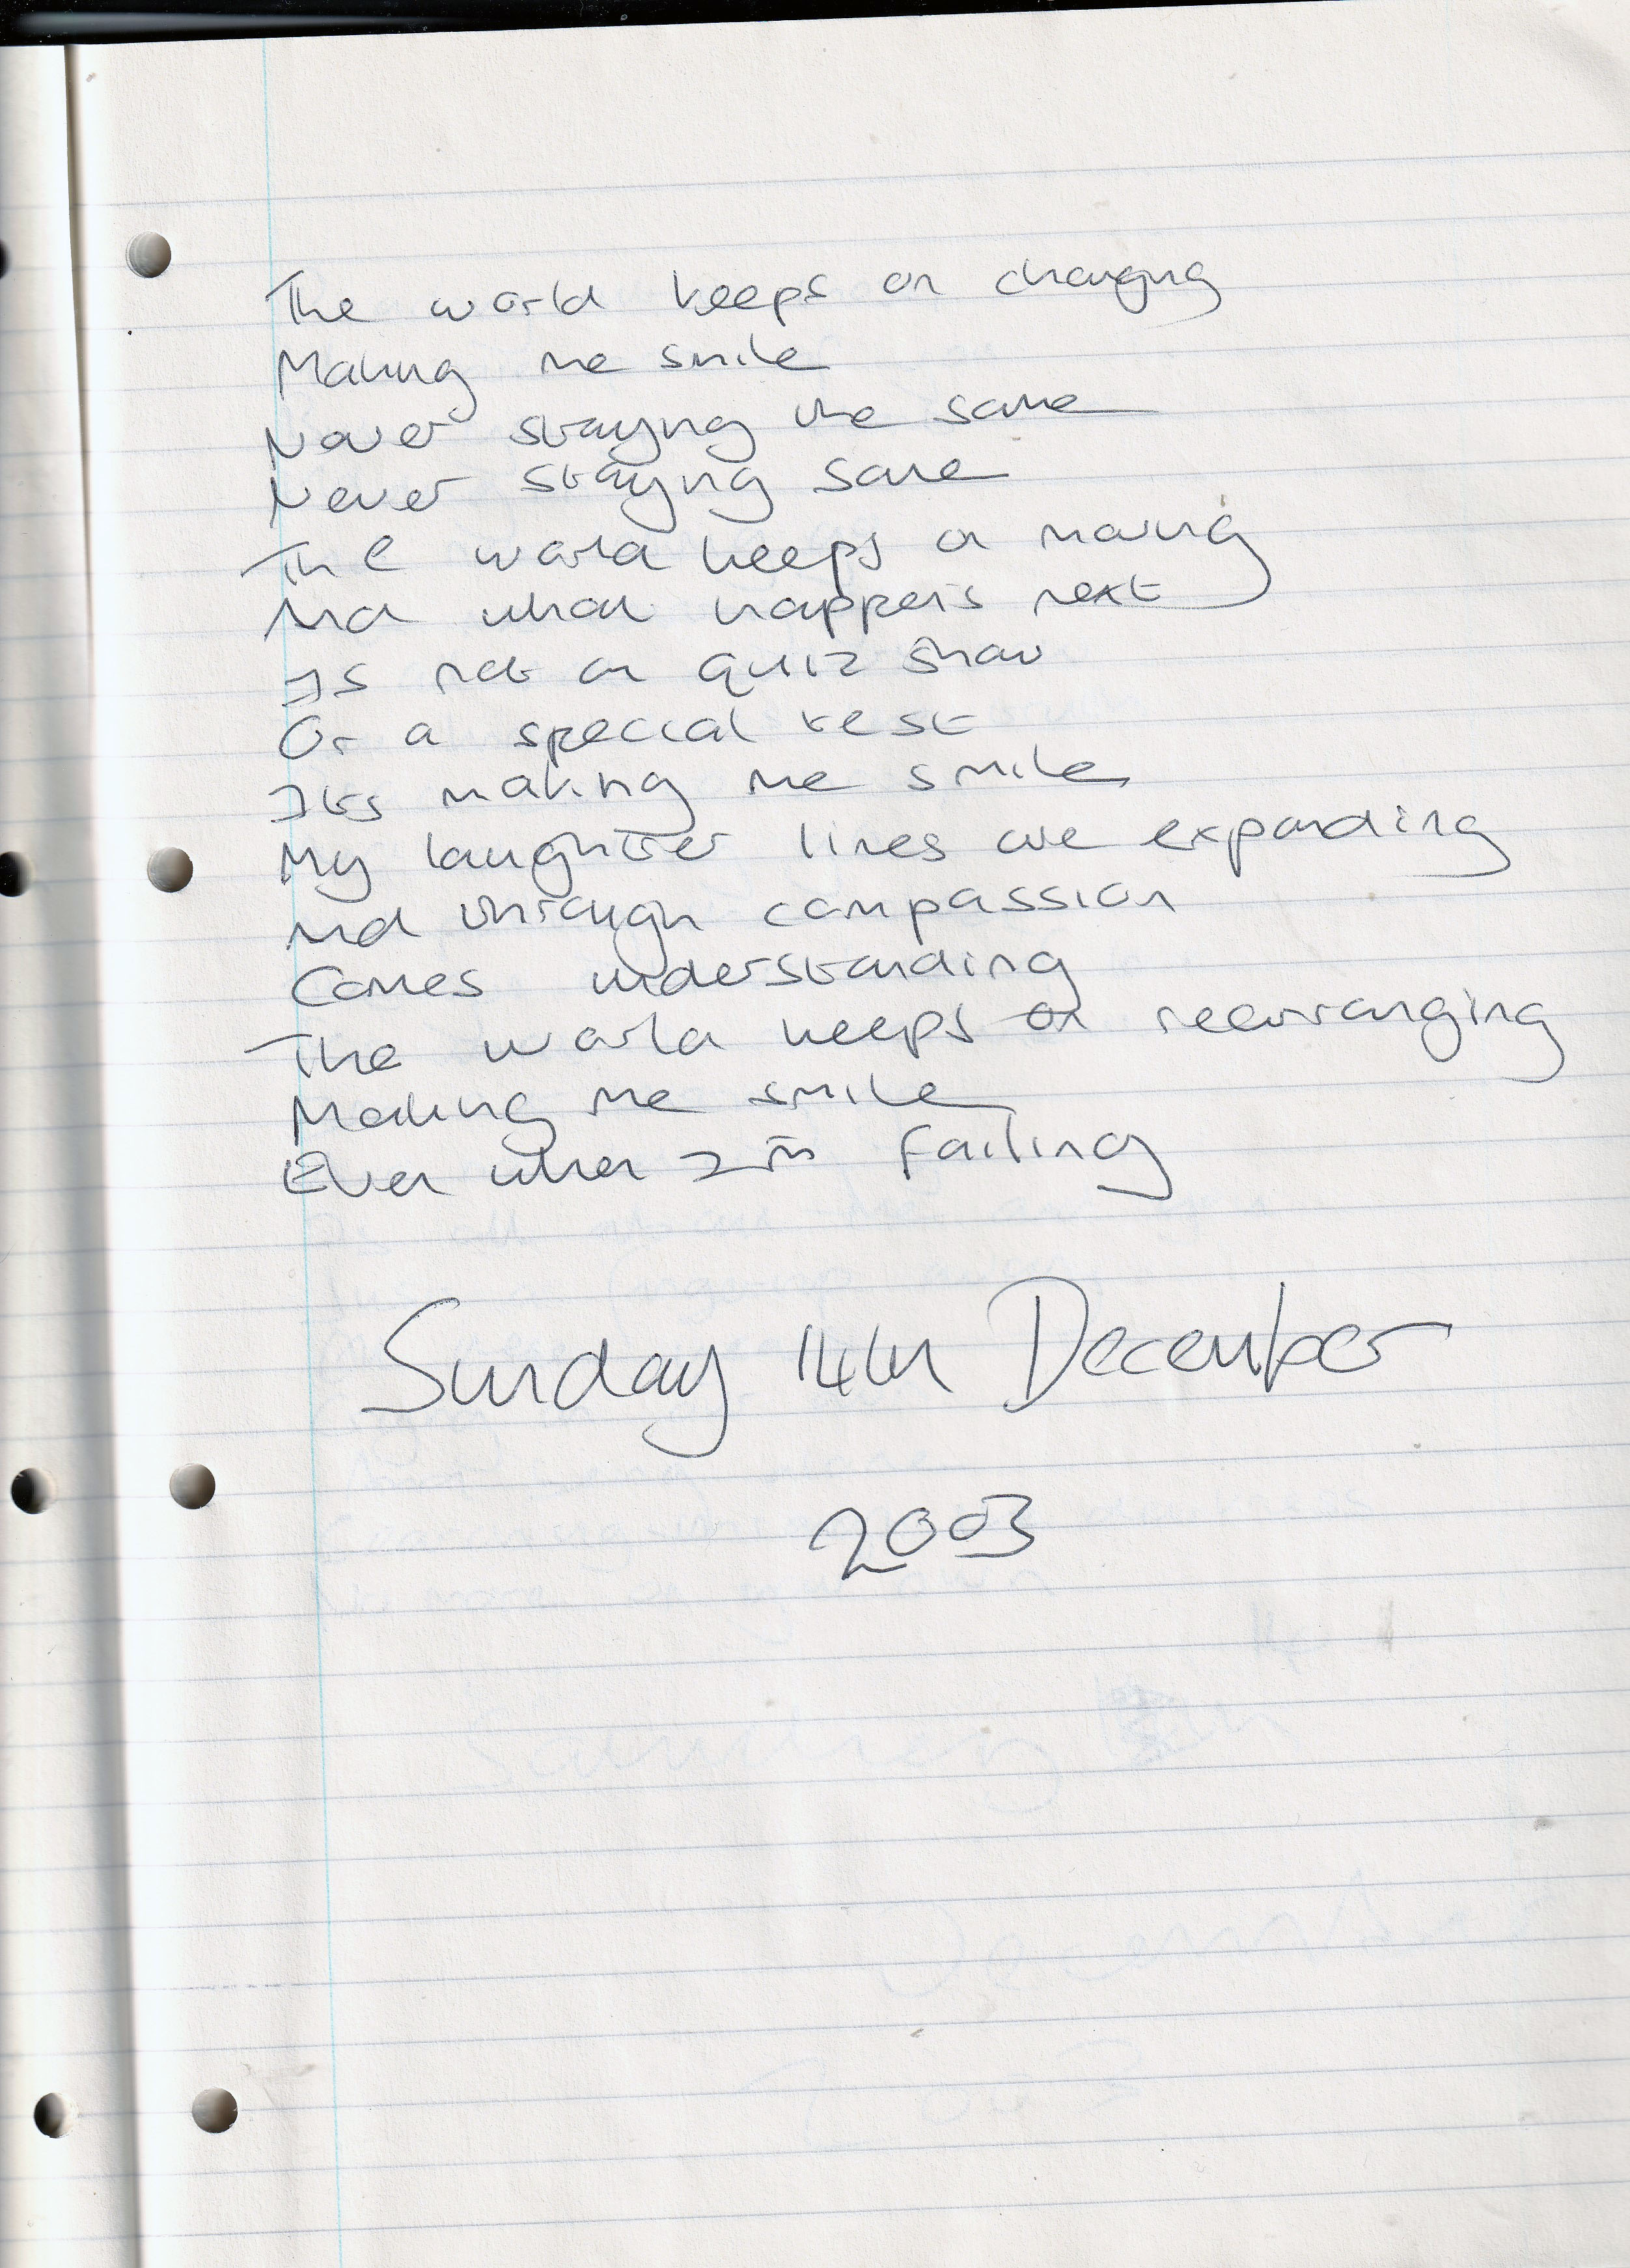 The world keeps on changing
Making me smile
Never staying the same
Never staying sane
The world keeps on moving
And what happens next
Is not a quiz show
Or a special test
Its making me smile
My laughter lines are expanding
And through compassion
Comes understanding
The world keeps on rearranging
Making me smile
Even when I'm failing
Sunday 14th December
2003